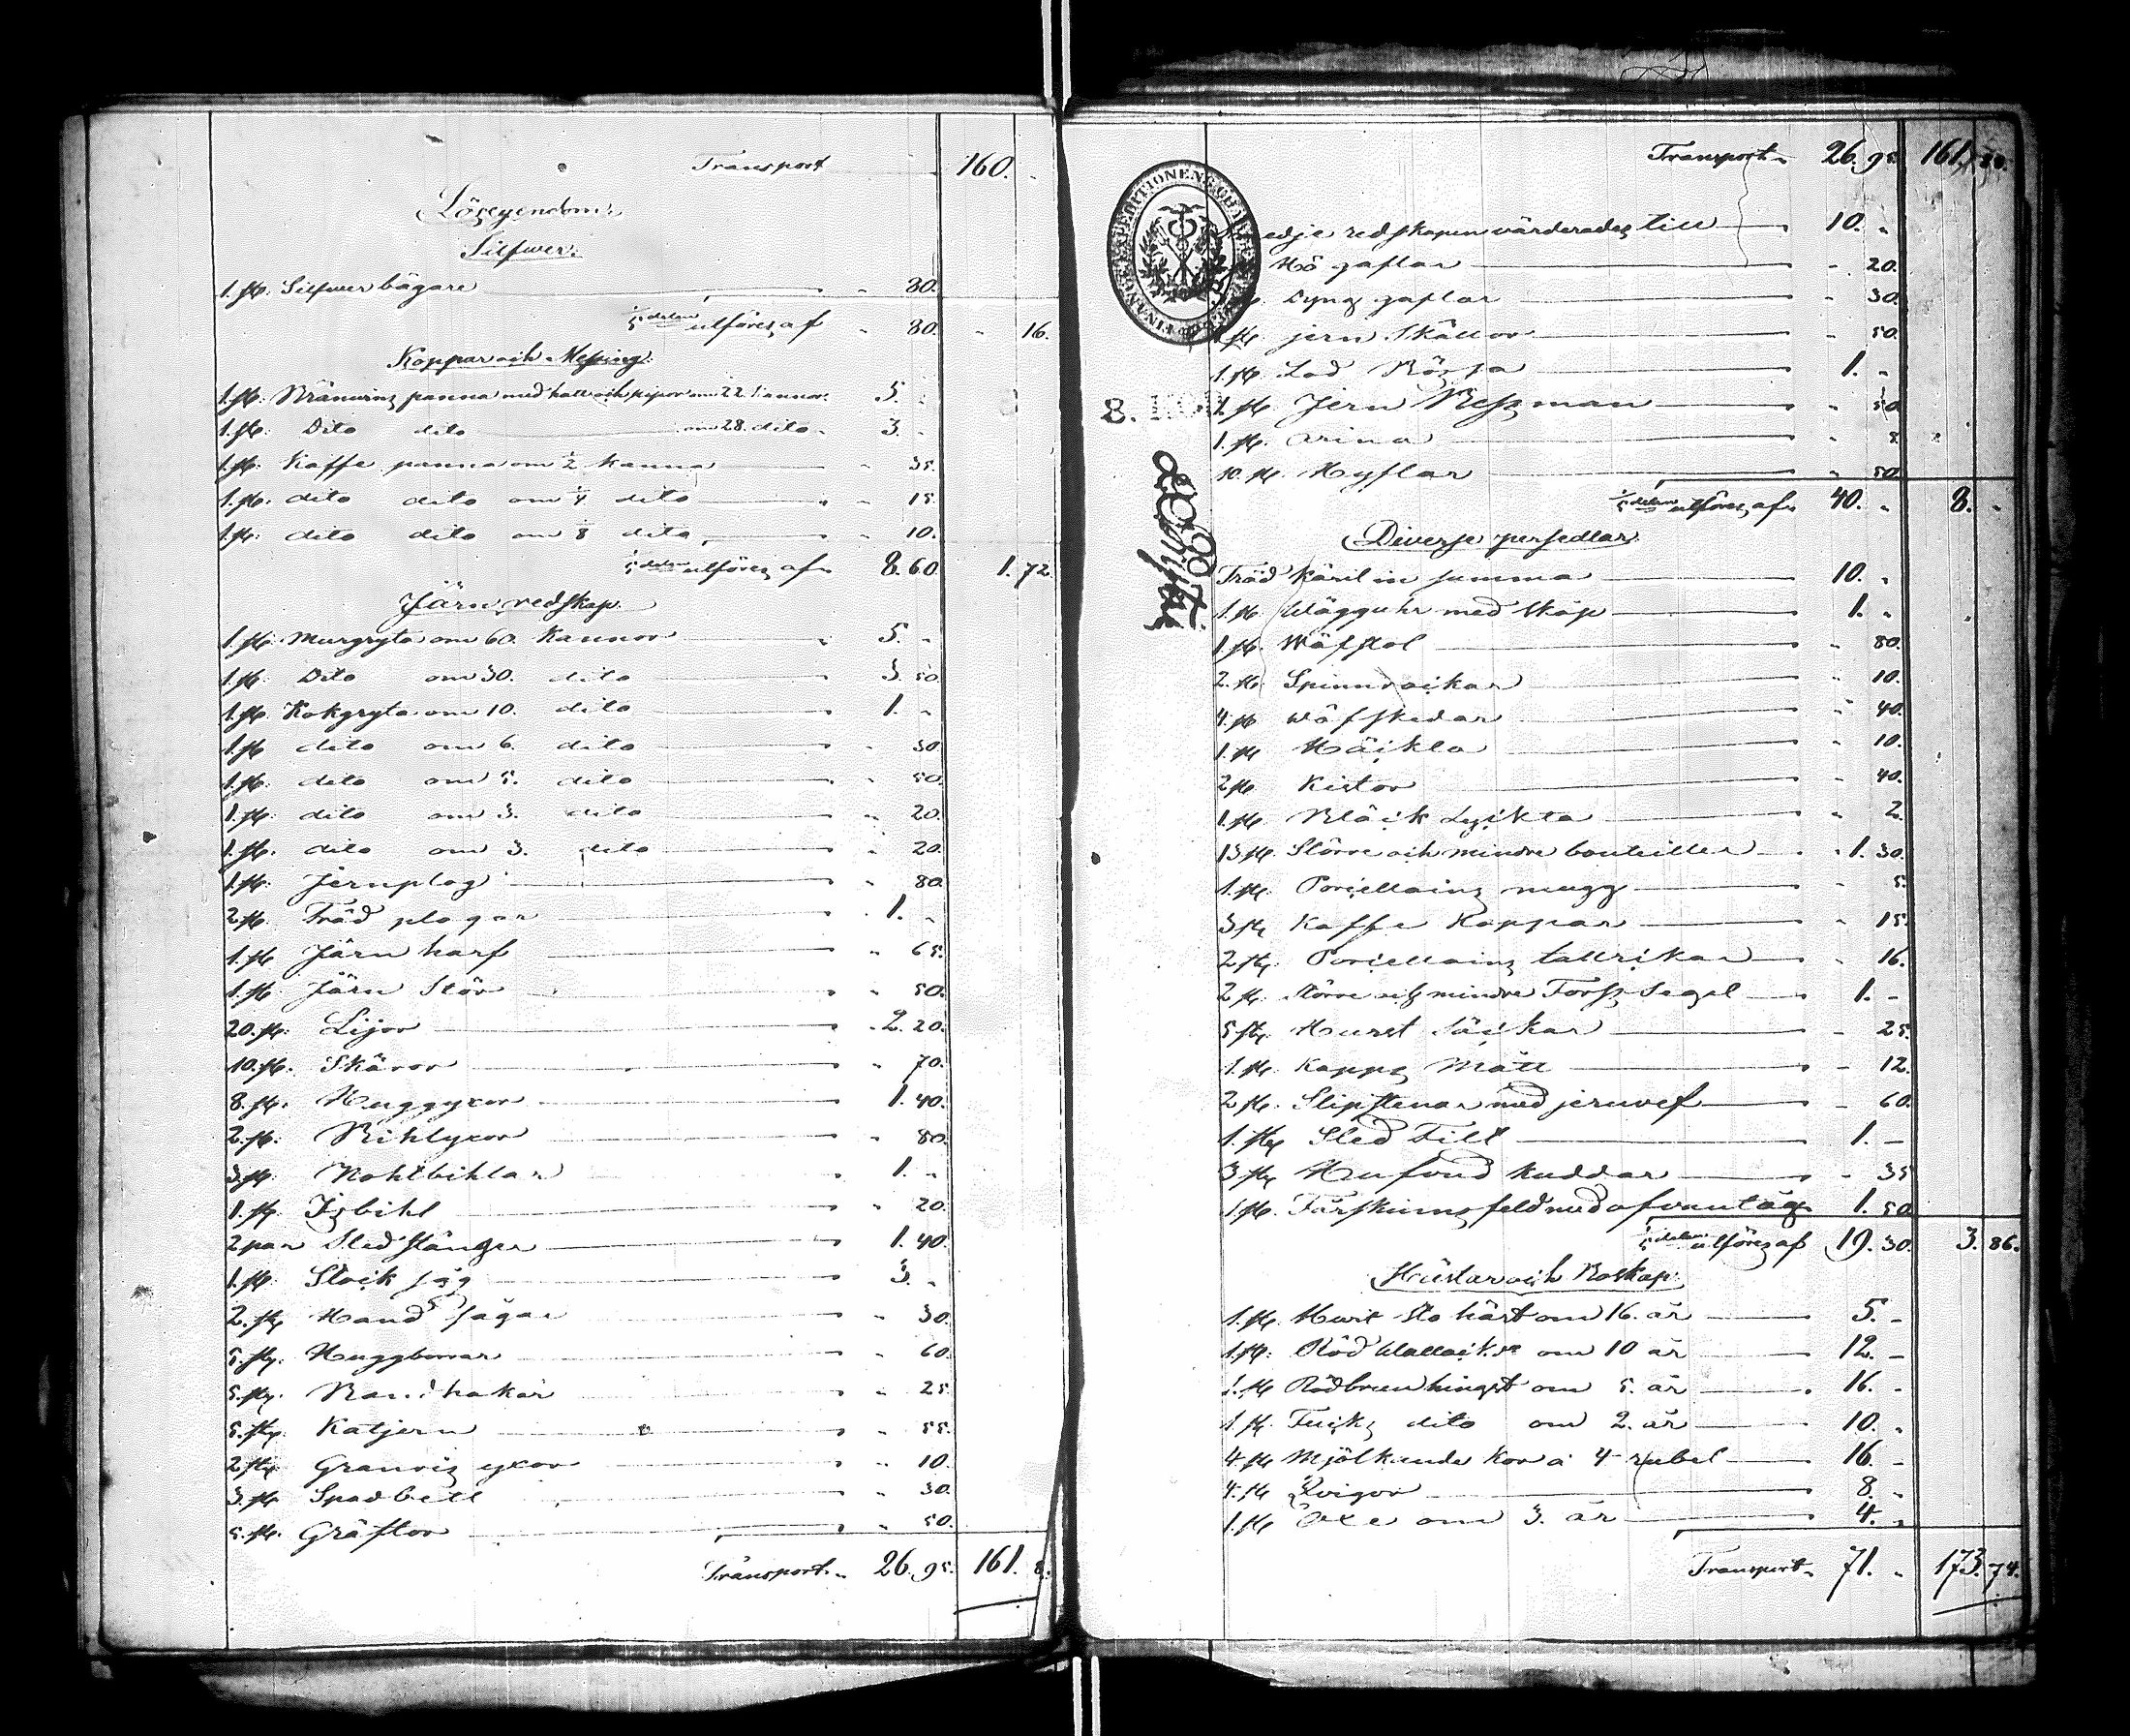 Transport 160. -
Lösegendom.
Silfwer.
1. st. Silfwer bägare - 80.
1/5 delen utföres af - 80. - 16.
Koppar och Messing.
1. st. Bränwins panna med hatt och pipor om 22. kannor. 5. -
1. st. Dito dito om 28. dito. 3. -
1. st. Kaffe panna om 1/2 kanna - 35.
1. st. dito dito om 1/4 dito - 15.
1. st. dito dito om 1/8 dito - 10.
1/5 delen utföres af 8. 60. 1. 72.
Järn redskap.
1. st. Murgryta om 60. Kannor 5. -
1. st. Dito om 30. dito 3. 50.
1. st. Kokgryta om 10. dito 1. -
1. st. dito om 6. dito - 50.
1. st. dito om 5. dito - 50.
1. st. dito om 3. dito - 20.
1. st. dito om 3. dito - 20.
1. st. Jernplog - 80.
2. st. Träd plogar 1. -
1. st. Järn harf - 65.
1. st. Järn Stör - 50.
20. st. Lijor 2. 20.
10. st. Skäror - 70.
8. st. Huggyxor 1. 40.
2. st. Bihlyxor - 80.
3. st. Nohlbihlar 1. -
1. st. Isbihl - 20.
2 par Sled stänger 1. 40.
1. st. Stock såg 3. -
2. st. Hand sågar - 30.
5. st. Huggborrar - 60.
5. st. Bandhakar - 25.
5. st. Katjern - 55.
2. st. Granris yxor - 10.
3. st. Spadbett - 30.
5. st. Gräftor - 50.
Transport. 26. 95. 161. 8
Transport. 26. 95. 161.
redskapen värderades till 10. -
Hö gaflar - 20.
Dyng gaflar - 30.
st. jern Skållor - 50.
1. st. Lod Bössa 1. -
st. Jern Bessman - 50
1. st. - 5
10. st. Hyflar - 50.
1/5 delen utföres af 40. - 8. -
8.
Diverse persedlar.
Träd käril in summa 10. -
1. st. Wägguhr med skåp 1. -
1. st. Wäfstol - 80.
2. st. Spinnrockar - 10.
4. st. Wäfskedar - 40.
1. st. Häckla - 10.
2 st. Kistor - 40.
1. st. Bläck Lyckta - 2.
13. st. Större och mindre bouteiller 1. 30.
1. st. Porcellains mugg - 5.
3 st. Kaffe Koppar - 15.
2 st. Porcellains tallrikar - 16.
2 st. Större och mindre Forss Segel 1. -
5 st. Hurst Säckar - 25.
1. st. Kapps Mått - 12.
2 st. Slipstenar med jernvef - 60.
1. st. Sled Fill 1. -
3 st. Hufvud kuddar - 35
1. st. Fårskinns fäld med afvantåg 1. 50
1/5 delen utföres af 19. 30. 3. 86.
Hästar och Boskap.
1. st. Swart Sto häst om 16. år 5. -
1. st. Röd Wallack om 10 år 12. -
1. st. Rödbrun hingst om 5. år 16. -
1. st. Fucks dito om 2. år 10. -
4. st. Mjölkande Kor a 4 rubel 16. -
4. st. Qvigor 8. -
1. st. Oxe om 3. år 4. -
Transport. 71. - 173. 74.